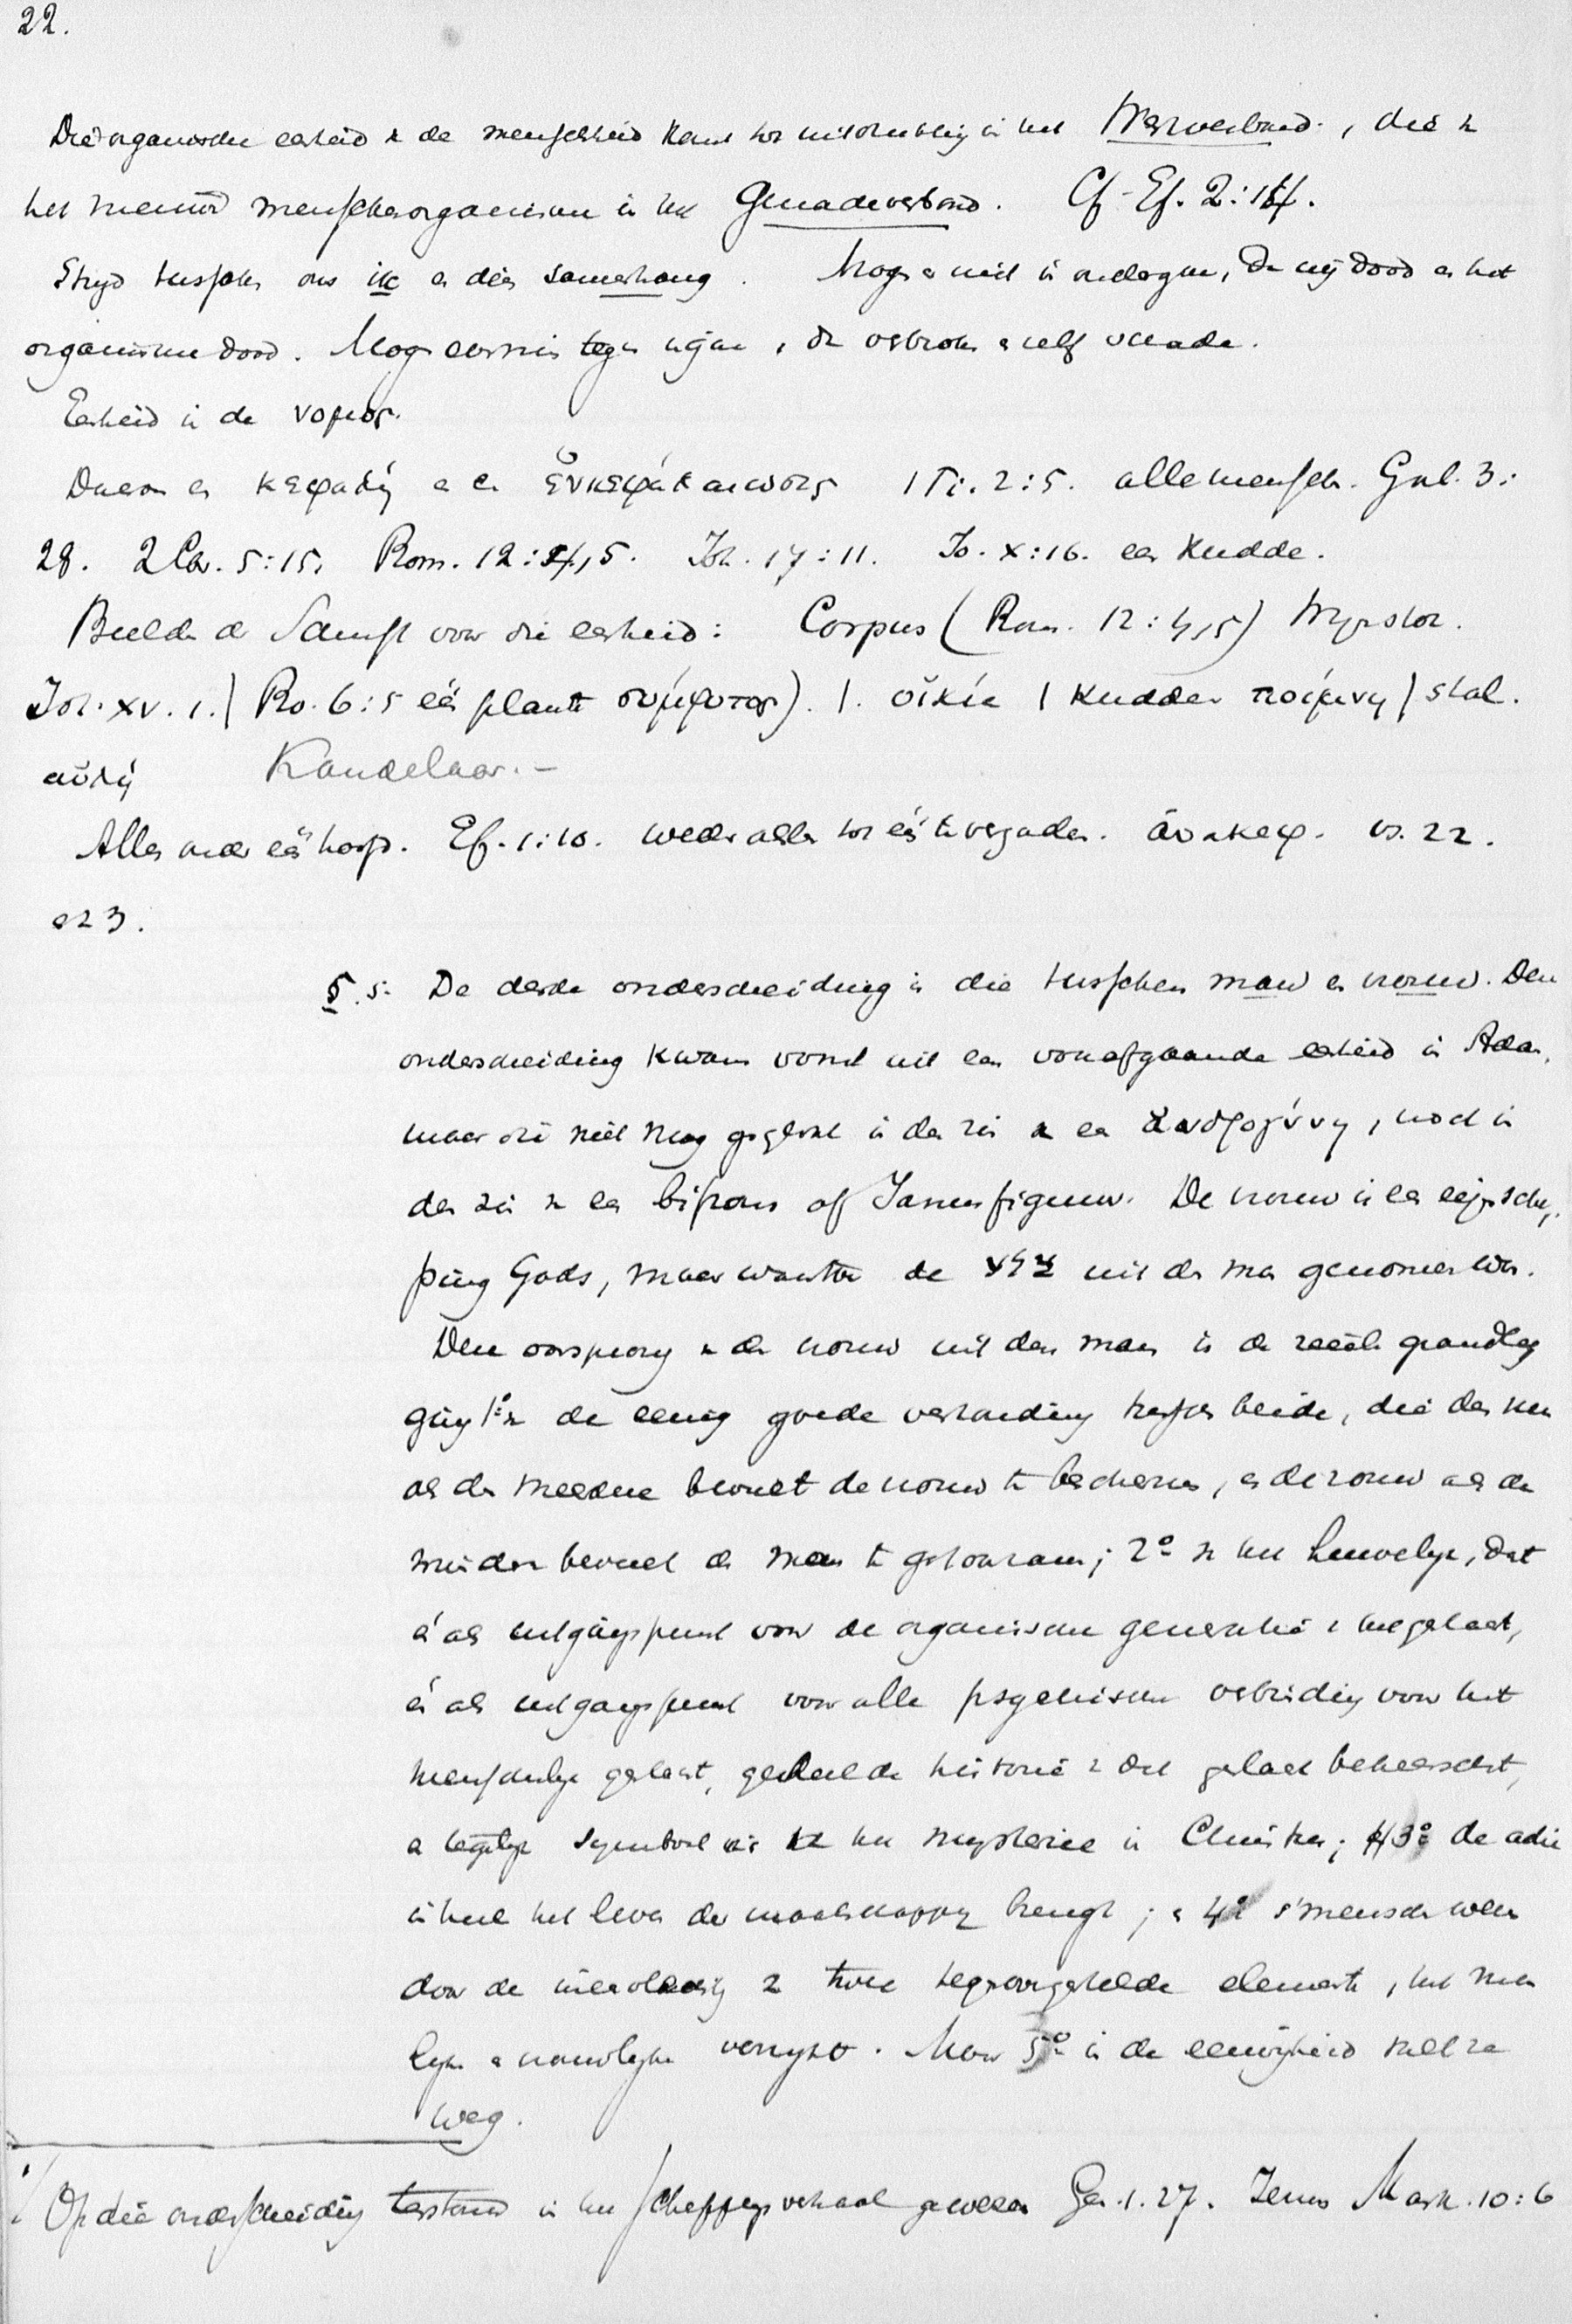 22.
Die organische eenheid v de menschheid komt tot uitdrukking in het Werkverbond, die v
het nieuwe menschenorganisme in het Genadeverbond. Cf. Ef. 2:15.
Strijd tusschen ons ik en dien samenhang. Mogen niet in ondergaan, dan wij dood en het
organisme dood. Mogen er niet tegen ingaan, dan verbroken en zelf
Eenheid in de νομος.
Daarom en κεφαλή en en 1 Ti. 2:5. alle menschen. Gal. 3:
28. 2 Cor. 5:15. Rom. 12:4,5. Joh. 17:11. Jo. X:16. een Kudde.
Beelden d Schrift voor die eenheid: Corpus (Rom. 12:4,5) Wijnstok.
Joh. XV. 1. | Ro. 6:5 één plante σύμφυτος). |. οἰκία | Kudde ποίμνη | stal.
αὐλή Kandelaar. –
Alles onder één hoofd. Ef. 1:10. weder alles tot één te vergaderen. ἀνακεφ. vs. 22.
en 23.
§. 5. De derde onderscheiding is die tusschen man en vrouw. Deze
onderscheiding kwam voort uit een voorafgaande eenheid in Adam,
maar die niet mag gezocht in den zin v een ἀνδρογύνη, noch in
den zin v een bifrons of Janusfiguur. De vrouw is een eigen schep-
ping Gods, maar waartoe de צלע uit den man genomen wierd.
Deze oorsprong v de vrouw uit den man is de reëele grondleg
ging 1º v de eenig goede verhouding tusschen beide, die den man
als de meerdere beveelt de vrouw te beschermen, en de vrouw als de
mindere beveelt den man te gehoorzamen; 2º v het huwelijk, dat
én als uitgangspunt voor de organische generatie v het geslacht,
én als uitgangspunt voor alle psychische verbinding voor het
menschelijk geslacht, geheel de historie v dat geslacht beheerscht,
en tegelijk symbool is v het mysterie in Christus; 3º de actie
in heel het leven der maatschappij brengt; en 4º 's menschen wezen
door de inwerking v twee tegenovergestelde elementen, het man
lijke en vrouwlijke verrijkt. Maar 5º in de eeuwigheid valt ze
weg.
Op die onderscheiding terstond in het scheppingsverhaal gewezen Gen. 1.27. Jezus Mark. 10:6